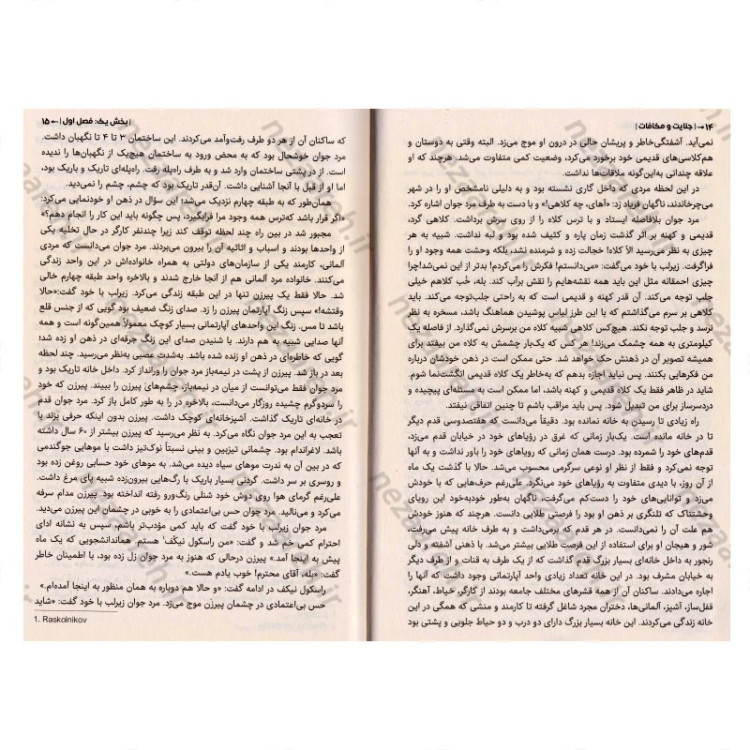 ۱۴ → | جنایت و مکافات |
نمی‌آید. آشفتگی‌خاطر و پریشان حالی در درون او موج می‌زد. البته وقتی به دوستان و
هم‌کلاسی‌های قدیمی خود برخورد می‌کرد، وضعیت کمی متفاوت می‌شد. هرچند که او
علاقه چندانی به‌این‌گونه ملاقات‌ها نداشت.
در این لحظه مردی که داخل گاری نشسته بود و به دلیلی نامشخص او را در شهر
می‌چرخاندند، ناگهان فریاد زد: «آهای، چه کلاهی!» و با دست به طرف مرد جوان اشاره کرد.
مرد جوان بلافاصله ایستاد و با ترس کلاه را از روی سرش برداشت. کلاهی گرد،
قدیمی و کهنه بر اثر گذشت زمان پاره و کثیف شده بود و لبه نداشت. شبیه به هر
چیزی به نظر می‌رسید الا کلاه! خجالت زده و شرمنده نشد، بلکه وحشت همه وجود او را
فراگرفت. زیرلب با خود می‌گفت: «می‌دانستم! فکرش را می‌کردم! بدتر از این نمی‌شد! چرا
چیزی احمقانه مثل این باید همه نقشه‌هایم را نقش برآب کند. بله، خُب کلاهم خیلی
جلب توجه می‌کند. آن قدر کهنه و قدیمی است که به راحتی جلب‌توجه می‌کند. باید
کلاهی بر سرم می‌گذاشتم که با این طرز لباس پوشیدن هماهنگ باشد، مسخره به نظر
نرسد و جلب توجه نکند. هیچ‌کس کلاهی شبیه کلاه من برسرش نمی‌گذارد. از فاصله یک
کیلومتری به همه چشمک می‌زند! هر کس که یک‌بار چشمش به کلاه من بیفتد برای
همیشه تصویر آن در ذهنش حک خواهد شد. حتی ممکن است در ذهن خودشان درباره
من فکرهایی بکنند. پس نباید اجازه بدهم که به‌خاطر یک کلاه قدیمی انگشت‌نما شوم.
شاید در ظاهر فقط یک کلاه قدیمی و کهنه باشد، اما ممکن است به مسئله‌ای پیچیده و
دردسرساز برای من تبدیل شود. پس باید مراقب باشم تا چنین اتفاقی نیفتد.
راه زیادی تا رسیدن به خانه نمانده بود. دقیقاً می‌دانست که هفتصدوسی قدم دیگر
تا در خانه مانده است. یک‌بار زمانی که غرق در رؤیاهای خود در خیابان قدم می‌زد،
قدم‌های خود را شمرده بود. درست همان زمانی که رویاهای خود را باور نداشت و به آنها
توجه نمی‌کرد و فقط از نظر او نوعی سرگرمی محسوب می‌شد. حالا با گذشت یک ماه
از آن روز، با دیدی متفاوت به رؤیاهای خود می‌نگرد علی‌رغم حرف‌هایی که با خودش
می‌زد و توانایی‌های خود را دست‌کم می‌گرفت، ناگهان به‌طور خودبه‌خود این رویای
وحشتناک که تلنگری بر ذهن او بود را فرصتی طلایی دانست. هرچند که هنوز خودش
هم علت آن را نمی‌دانست. در هر قدم که برمی‌داشت و به طرف خانه پیش می‌رفت،
شور و هیجان او برای استفاده از این فرصت طلایی بیشتر می‌شد. با ذهنی آشفته و دلی
رنجور به داخل خانه‌ای بسیار بزرگ قدم گذاشت که از یک طرف به قنات و از طرف دیگر
به خیابان مشرف بود. در این خانه تعداد زیادی واحد آپارتمانی وجود داشت که آنها را
اجاره می‌دادند. ساکنان آن از همه قشرهای مختلف جامعه بودند از کارگر، خیاط، آهنگر،
قفل‌ساز، آشپز، آلمانی‌ها، دختران مجرد شاغل گرفته تا کارمند و منشی که همگی در این
خانه زندگی می‌کردند. این خانه بسیار بزرگ دارای دو درب و دو حیاط جلویی و پشتی بود
| بخش یک: فصل اول | ← ۱۵
که ساکنان آن از هر دو طرف رفت‌وآمد می‌کردند. این ساختمان ۳ تا ۴ تا نگهبان داشت.
مرد جوان خوشحال بود که به محض ورود به ساختمان هیچ‌یک از نگهبان‌ها را ندیده
است. از در پشتی ساختمان وارد شد و به طرف راه‌پله رفت. راه‌پله‌ای تاریک و باریک بود،
اما او از قبل با آنجا آشنایی داشت. آن‌قدر تاریک بود که چشم، چشم را نمی‌دید.
همان‌طور که به طبقه چهارم نزدیک می‌شد؛ این سؤال در ذهن او خودنمایی می‌کرد:
«اگر قرار باشد که‌ترس همه وجود مرا فرابگیرد، پس چگونه باید این کار را انجام دهم؟»
مجبور شد در بین راه چند لحظه توقف کند زیرا چندنفر کارگر در حال تخلیه یکی
از واحدها بودند و اسباب و اثاثیه آن را بیرون می‌بردند. مرد جوان می‌دانست که مردی
آلمانی، کارمند یکی از سازمان‌های دولتی به همراه خانواده‌اش در این واحد زندگی
می‌کنند. خانواده مرد آلمانی هم از آنجا خارج شدند و بالاخره واحد طبقه چهارم خالی
شد. حالا فقط یک پیرزن تنها در این طبقه زندگی می‌کرد. زیرلب با خود گفت:«حالا
وقتشه!» سپس زنگ آپارتمان پیرزن را زد. صدای زنگ ضعیف بود گویی که از جنس قلع
باشد تا مس. زنگ این واحدهای آپارتمانی بسیار کوچک معمولاً همین‌گونه است و همه
آنها صدایی شبیه به هم دارند. با شنیدن صدای این زنگ جرقه‌ای در ذهن او زده شد؛
گویی که خاطره‌ای در ذهن او زنده شده باشد. به‌شدت عصبی به‌نظر می‌رسید. چند لحظه
بعد در باز شد. پیرزن از پشت در نیمه‌باز مرد جوان را ورانداز کرد. داخل خانه تاریک بود و
مرد جوان فقط می‌توانست از میان در نیمه‌باز، چشم‌های پیرزن را ببیند. پیرزن که خود
را سردوگرم چشیده روزگار می‌دانست، بالاخره در را به طور کامل باز کرد. مرد جوان قدم
در خانه‌ای تاریک گذاشت. آشپزخانه‌ای کوچک داشت. پیرزن بدون اینکه حرفی بزند یا
تعجب به این مرد جوان نگاه می‌کرد. به نظر می‌رسید که پیرزن بیشتر از ۶۰ سال داشته
باشد. لاغراندام بود. چشمانی تیزبین و بینی نسبتاً نوک‌تیز داشت با موهایی جوگندمی
که در بین آن به ندرت موهای سیاه دیده می‌شد. به موهای خود حسابی روغن زده بود
و روسری بر سر داشت. گردنی بسیار باریک با رگ‌هایی بیرون‌زده شبیه پای مرغ داشت.
علی‌رغم گرمای هوا روی دوش خود شنلی رنگ‌ورو رفته انداخته بود. پیرزن مدام سرفه
می‌کرد و می‌نالید. مرد جوان حس بی‌اعتمادی را به خوبی در چشمان این پیرزن می‌دید.
مرد جوان زیرلب با خود گفت که باید کمی مؤدب‌تر باشم، سپس به نشانه ادای
احترام کمی خم شد و گفت: «من راسکول نیکُف¹ هستم. همان‌دانشجویی که یک ماه
پیش به اینجا آمد.» پیرزن درحالی که هنوز به مرد جوان زل زده بود، با اطمینان خاطر
گفت: «بله، آقای محترم! خوب یادم هست.»
راسکول نیکف در ادامه گفت: «و حالا هم دوباره به همان منظور به اینجا آمده‌ام.»
حس بی‌اعتمادی در چشمان پیرزن موج می‌زد. مرد جوان زیرلب با خود گفت: «شاید
1. Raskolnikov